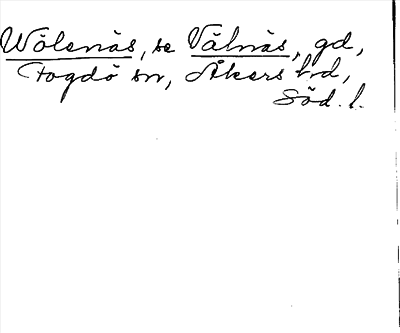 Wölsnäs, se Välnäs, gd,
Fogdö sn, Åkers hd,
Söd. l.